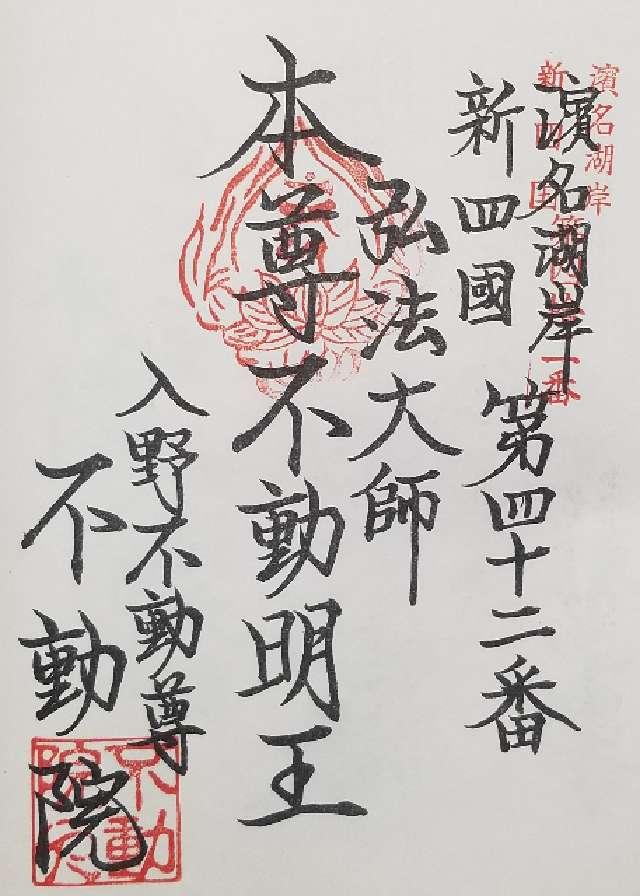 濱名湖岸
新四国第四十二番
濱名湖岸
新四國 第四十二番
弘法大師
本尊不動明王
入野不動尊
不動院
不動
院